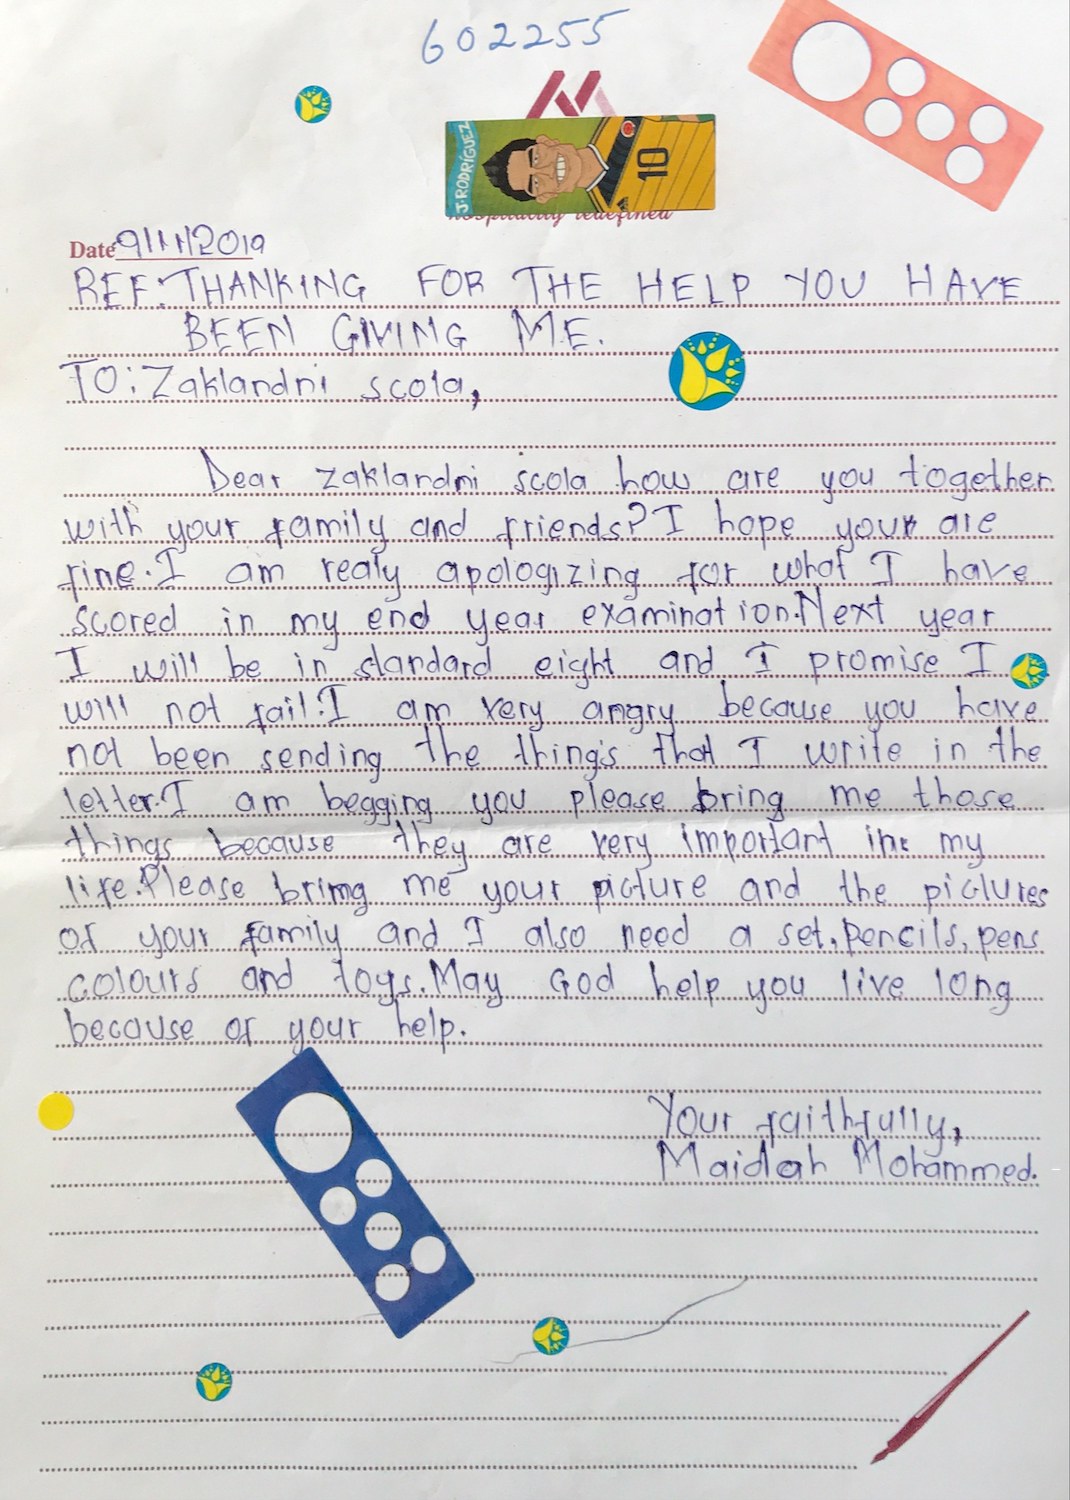 602255
J.RODRÍGUEZ
10
hospitality redefined
Date 9/11/2019
REF: THANKING FOR THE HELP YOU HAVE
BEEN GIVING ME.
TO: Zaklandni scola,
Dear zaklandni scola how are you together
with your family and friends? I hope your are
fine. I am realy apologizing for what I have
scored in my end year examination. Next year
I will be in standard eight and I promise I
will not fail. I am very angry because you have
not been sending the things that I write in the
letter. I am begging you please bring me those
things because they are very important in my
life. Please bring me your picture and the pictures
of your family and I also need a set, pencils, pens
colours and toys. May God help you live long
because of your help.
Your faithfully,
Maidah Mohammed.